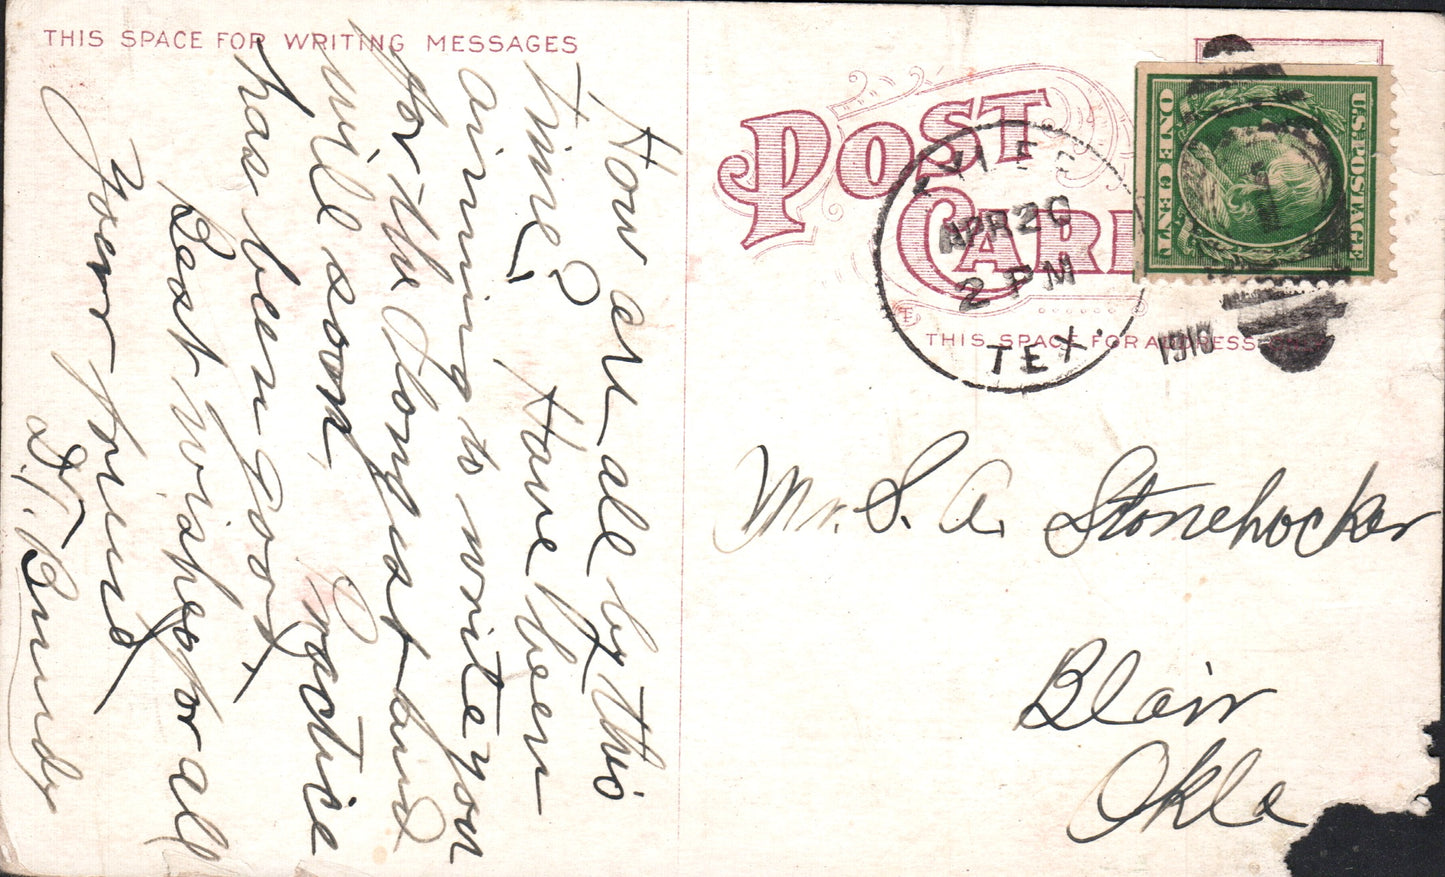 THIS SPACE FOR WRITING MESSAGES
How are all by this
time? Have been
aiming to write you
for the longest and
will soon. Practice
has been good.
Best wishes for all
Your friend
D.T. Bundy
POST
CARD
APR 20
2 PM
TEX.
1910
U.S. POSTAGE
ONE CENT
THIS SPACE FOR ADDRESS
Mr. S. A. Stonehocker
Blair
Okla